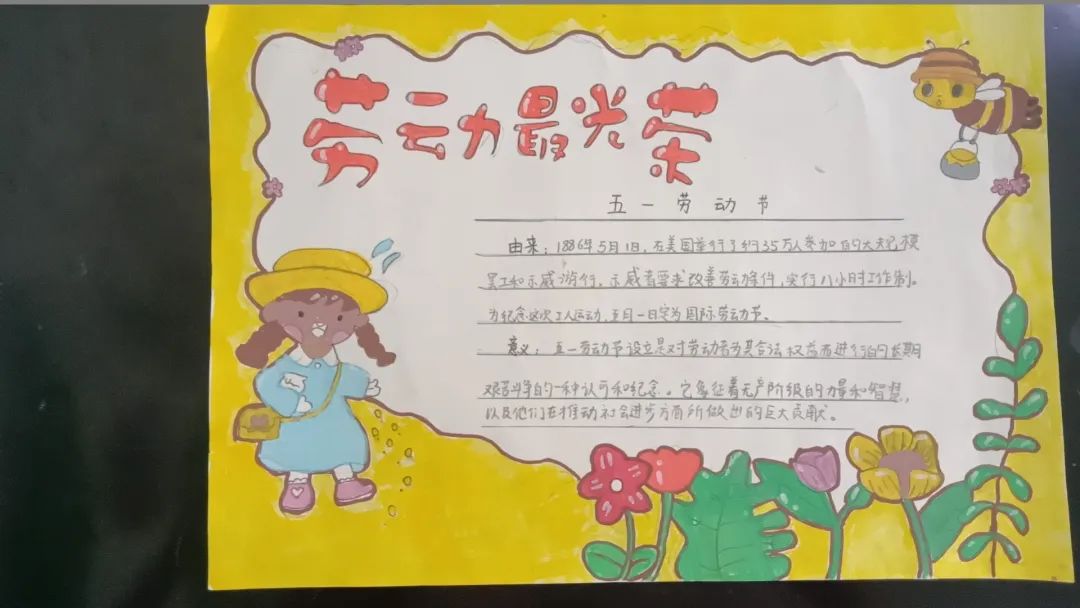 劳动最光荣
五一劳动节
由来：1886年5月1日，在美国举行了约35万人参加的大规模
罢工和示威游行，示威者要求改善劳动条件，实行八小时工作制。
为纪念这次工人运动，五月一日定为国际劳动节。
意义：五一劳动节设立是对劳动者为其合法权益而进行的长期
艰苦斗争的一种认可和纪念。它象征着无产阶级的力量和智慧，
以及他们在推动社会进步方面所做出的巨大贡献。